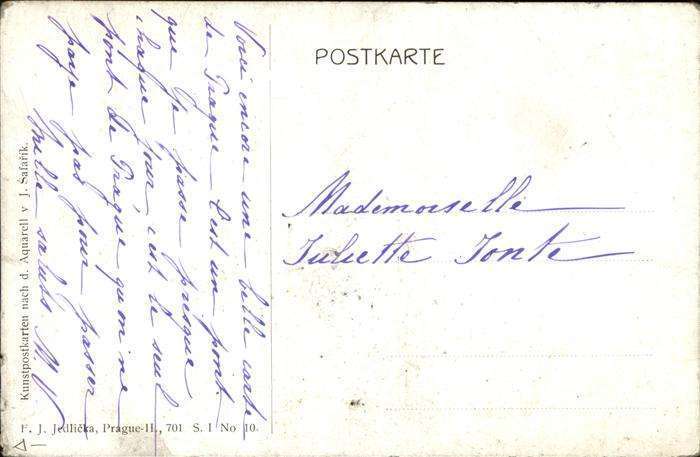 POSTKARTE
Voici encore une belle carte
de Prague. C'est un pont
que je passe presque
chaque jour, c'est le seul
pont de Prague qu'on ne
paye pas pour passer
Mille saluts. M. V
Mademoiselle
Juliette Jonte
Kunstpostkarten nach d. Aquarell v J. Šafařík.
F. J. Jedlička, Prague-II., 701 S. I No 10.